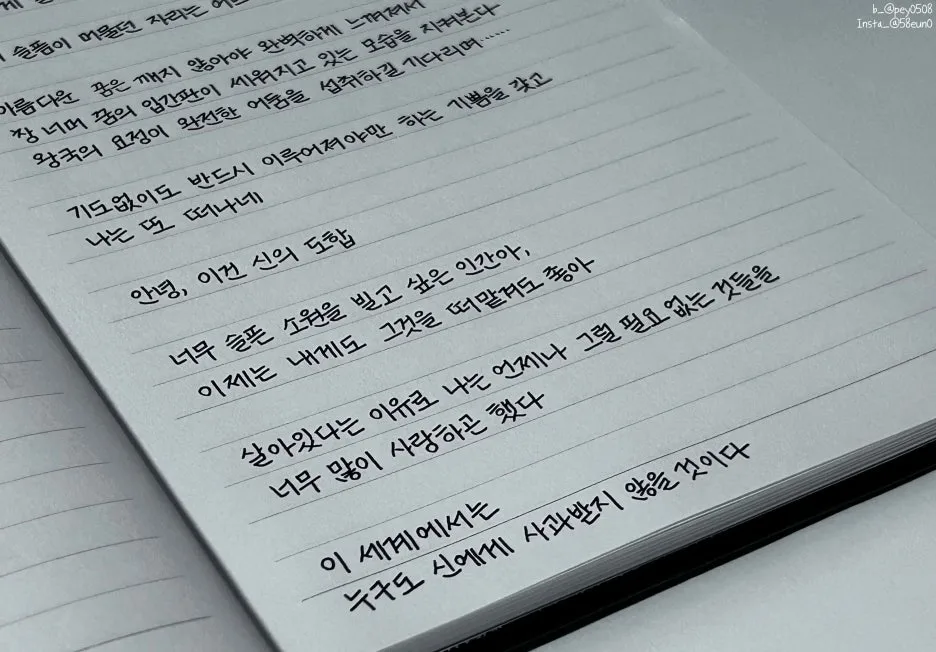 b_@pey0508
Insta_@58eun0
슬픔이 머물던 자리는
아름다운 꿈은 깨지 않아야 완벽하게 느껴져서
창 너머 꿈의 입간판이 세워지고 있는 모습을 지켜본다
왕국의 요정이 완전한 어둠을 섭취하길 기다리며……
기도없이도 반드시 이루어져야만 하는 기쁨을 갖고
나는 또 떠나네
안녕, 이건 신의 도합
너무 슬픈 소원을 빌고 싶은 인간아,
이제는 내게도 그것을 떠맡겨도 좋아
살아있다는 이유로 나는 언제나 그럴 필요 없는 것들을
너무 많이 사랑하곤 했다
이 세계에서는
누구도 신에게 사과받지 않을 것이다